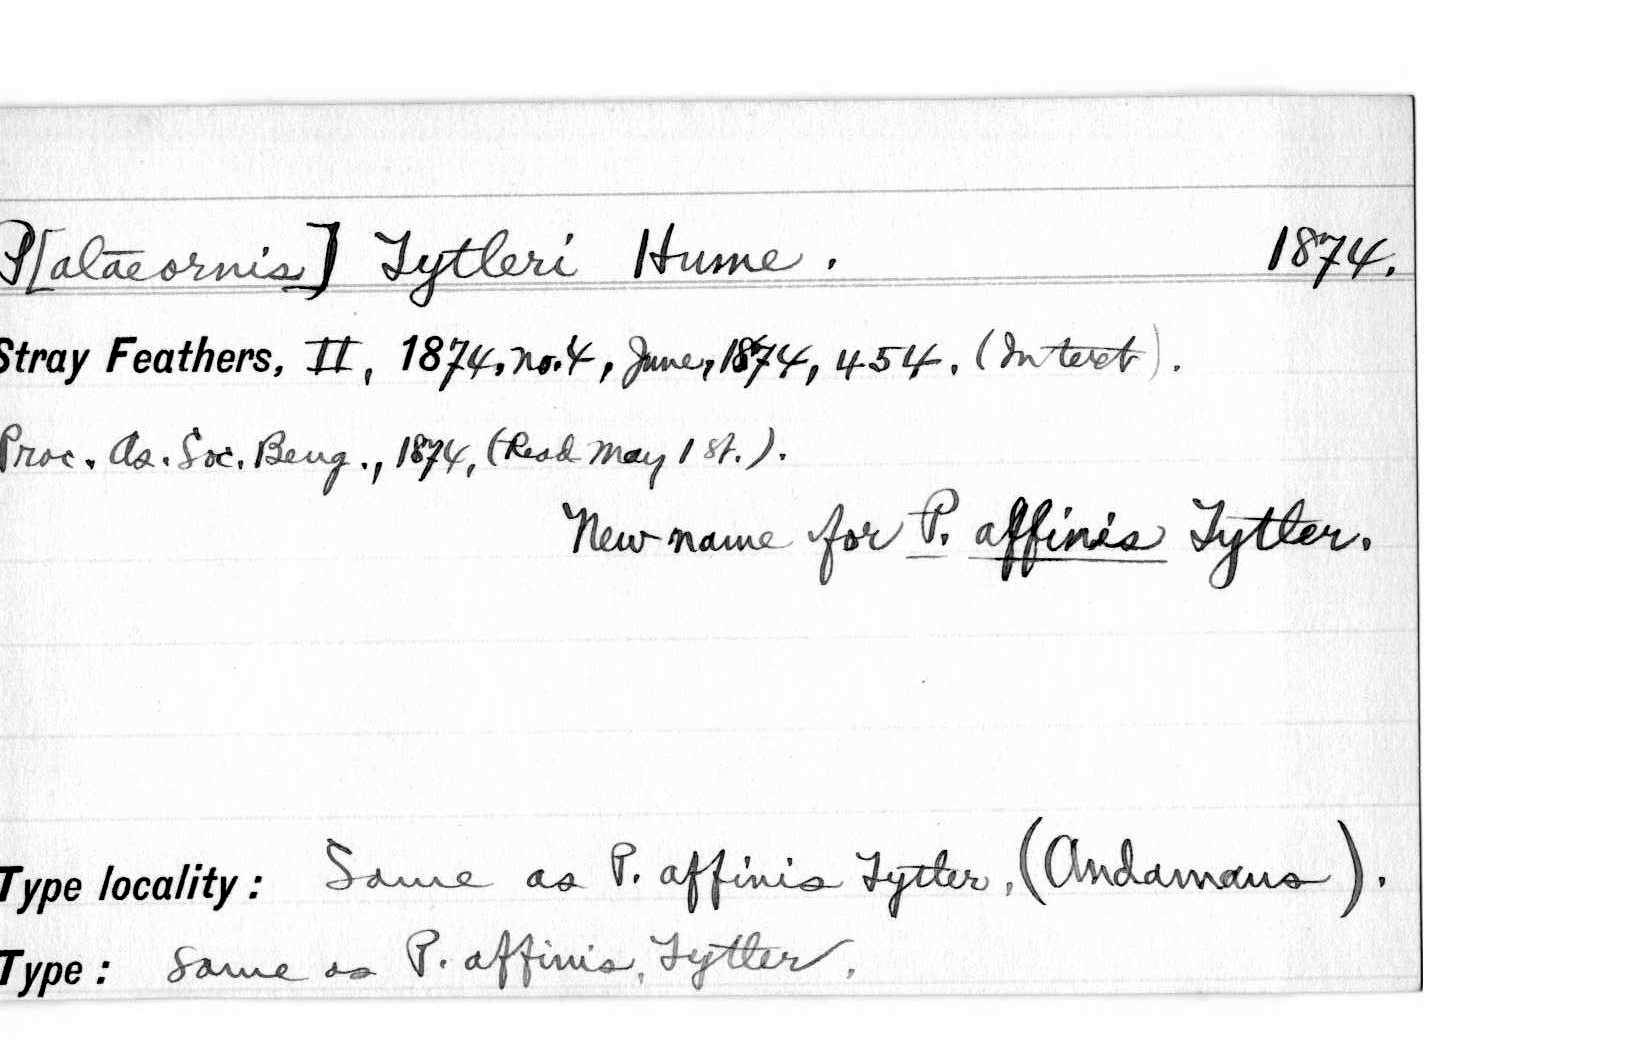 P[alaeornis] Tytleri Hume. 1874.
Stray Feathers, II, 1874, no. 4, June, 1874, 454. (In text).
Proc. As. Soc. Beng., 1874, (Read May 1st.).
New name for P. affinis Tytler.
Type locality: Same as P. affinis Tytler, (Andamans).
Type: Same as P. affinis, Tytler.